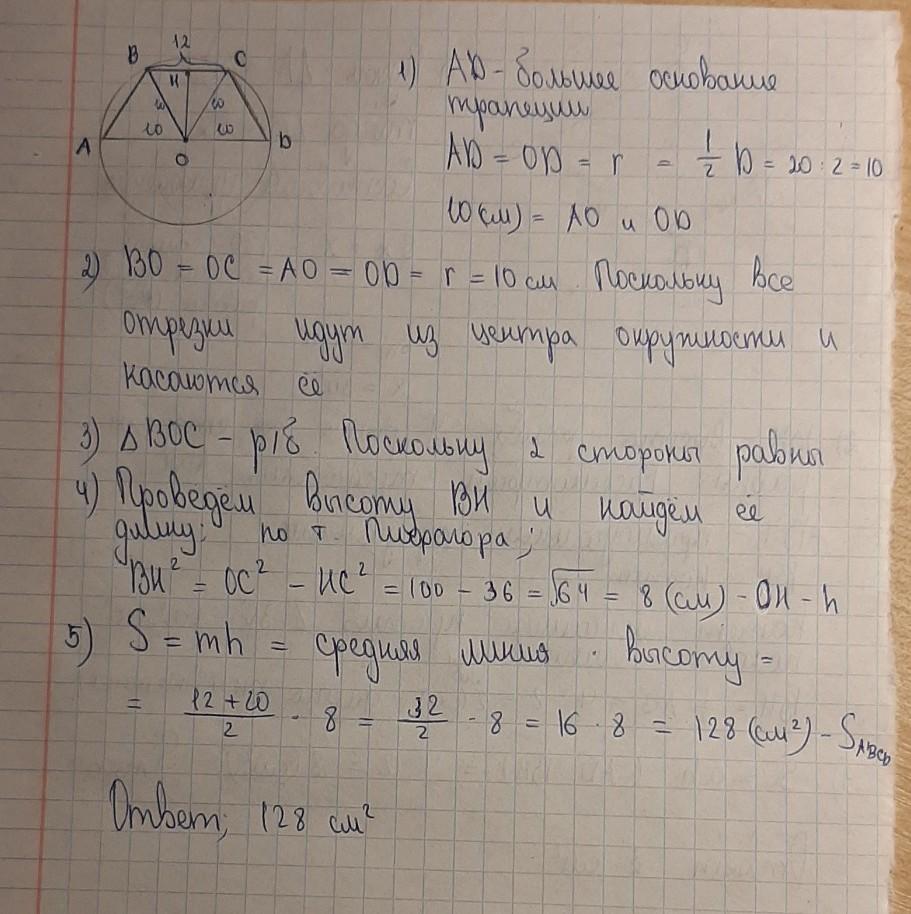 12
B C
H
10 10
10 10
A D
O
1) AD - большее основание
трапеции
AD = OD = r = 1/2 D = 20 : 2 = 10
10(см) = AO и OD
2) BO = OC = AO = OD = r = 10 см. Поскольку все
отрезки идут из центра окружности и
касаются её
3) △BOC - р/б. Поскольку 2 стороны равны
4) Проведём высоту BH и найдём её
длину; по т. Пифагора;
BH² = OC² - HC² = 100 - 36 = √64 = 8 (см) - OH - h
5) S = mh = средняя линия · высоту =
= (12 + 20)/2 · 8 = 32/2 · 8 = 16 · 8 = 128 (см²) - S ABCD
Ответ; 128 см²